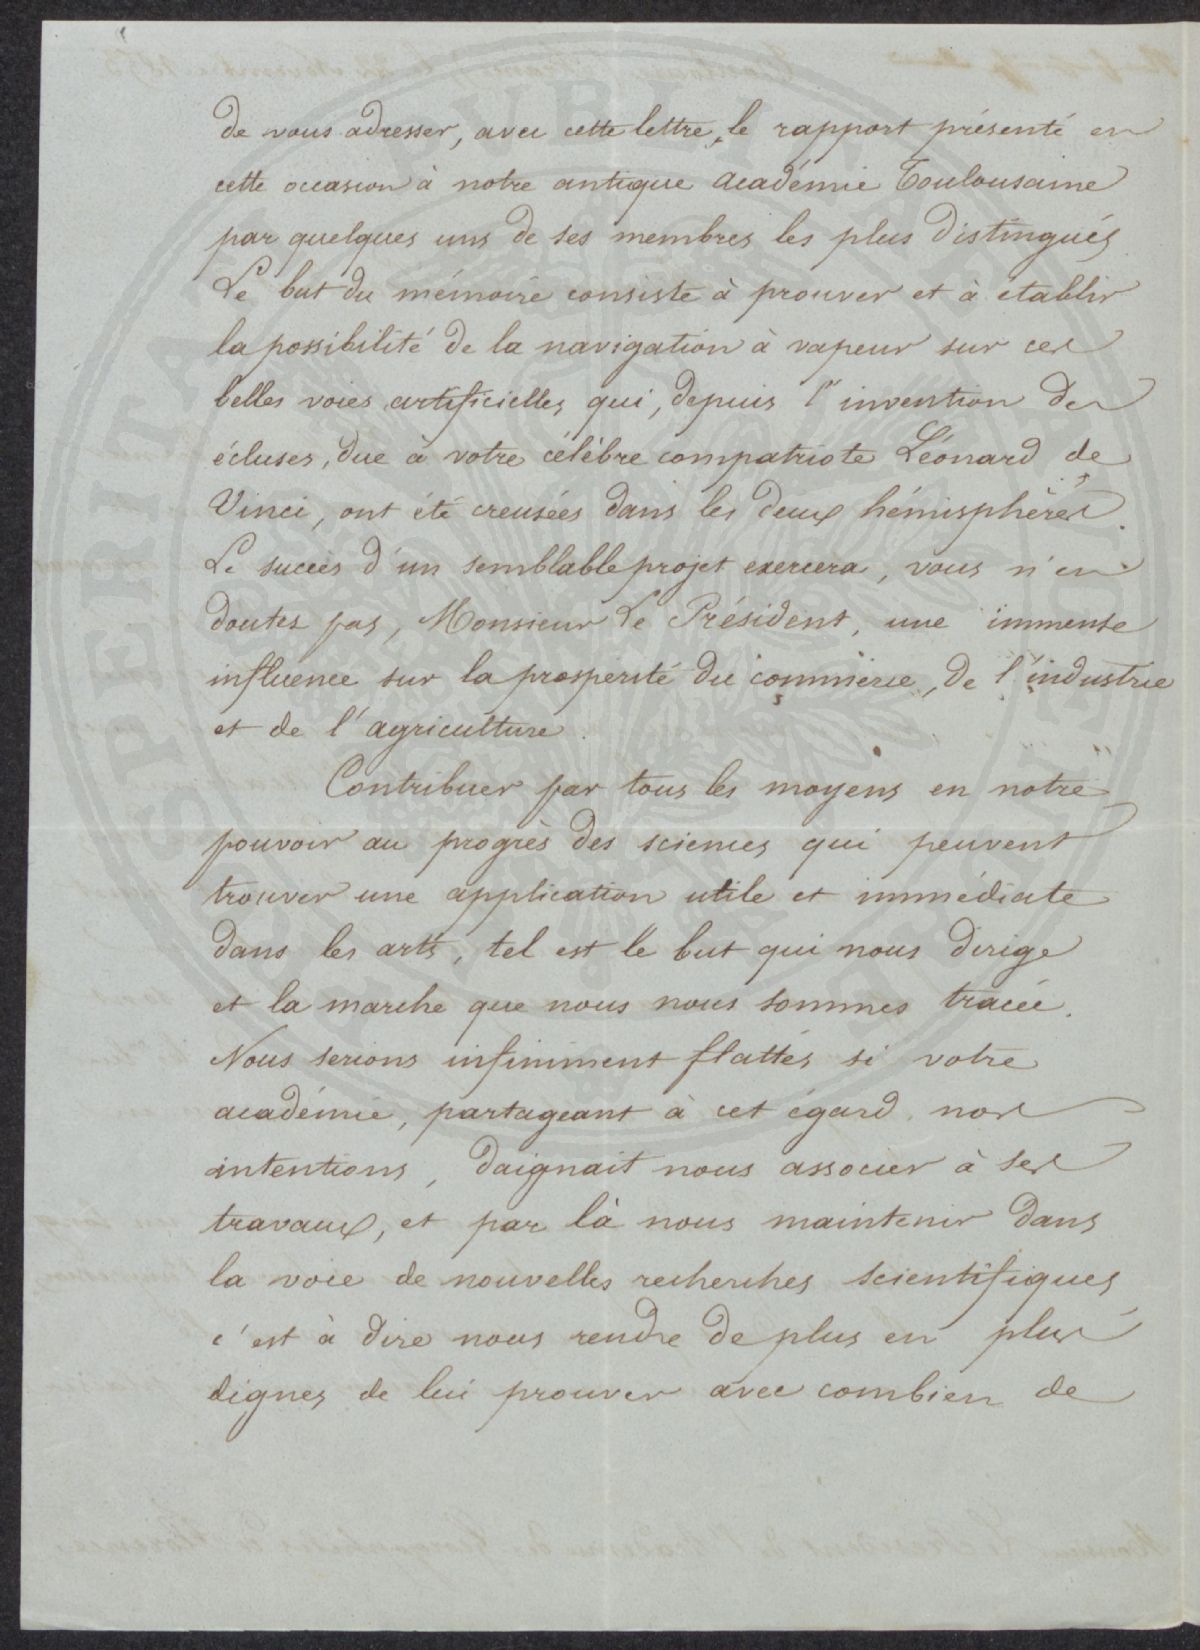 de vous adresser, avec cette lettre, le rapport présenté en
cette occasion à notre antique académie Toulousaine
par quelques uns de ses membres les plus distingués
Le but du mémoire consiste à prouver et à établir
la possibilité de la navigation à vapeur sur ces
belles voies artificielles qui, depuis l'invention des
écluses, due à votre célèbre compatriote Léonard de
Vinci, ont été creusées dans les deux hémisphères.
Le succès d'un semblable projet exercera, vous n'en
doutez pas, Monsieur Le Président, une immense
influence sur la prospérité du commerce, de l'industrie
et de l'agriculture.
Contribuer par tous les moyens en notre
pouvoir au progrès des sciences qui peuvent
trouver une application utile et immédiate
dans les arts, tel est le but qui nous dirige
et la marche que nous nous sommes tracée.
Nous serions infiniment flattés si votre
académie, partageant à cet égard nos
intentions, daignait nous associer à ses
travaux, et par là nous maintenir dans
la voie de nouvelles recherches scientifiques
c'est à dire nous rendre de plus en plus
dignes de lui prouver avec combien de